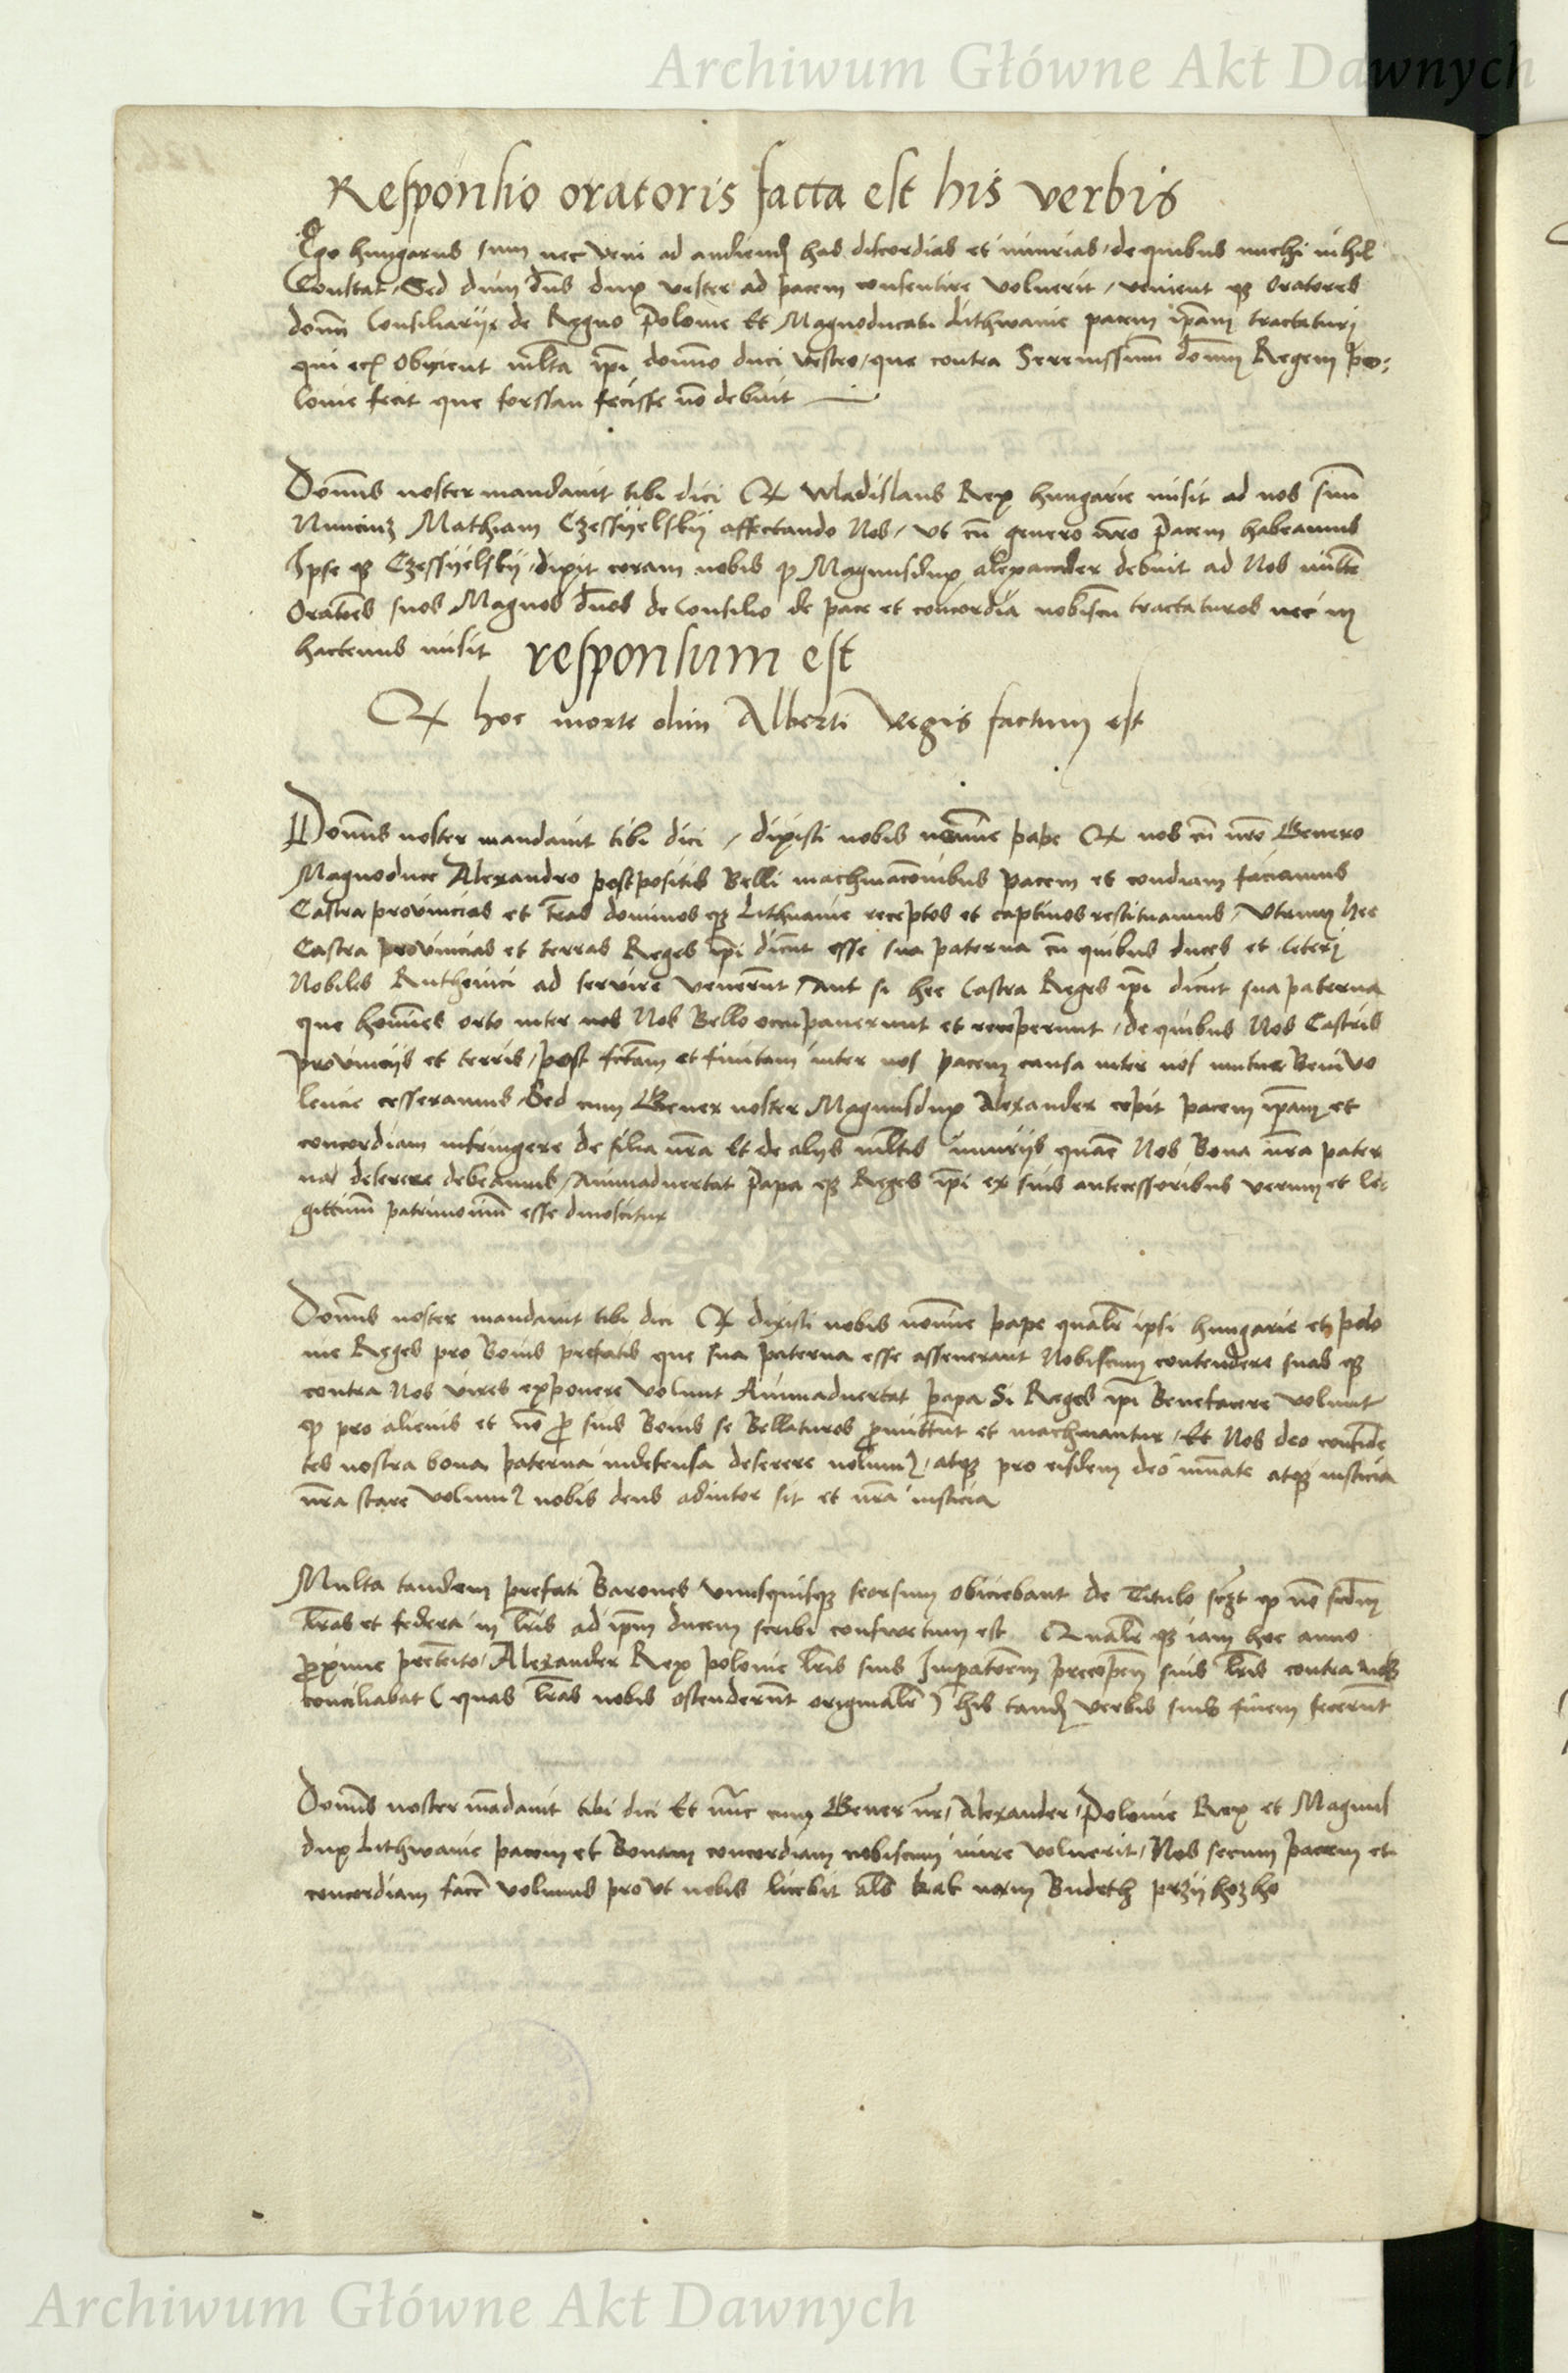 Archiwum Główne Akt Dawnych
Responsio oratoris facta est his verbis
Ego hungarus sum nec veni ad audiend has discordias et iniurias / de quibus michi nihil
Constat / Sed dum dns dux vester ad pacem consentire voluerit / venient qz oratores
domi Consiliarije de Regno Polonie Et Magnoducatu Lithwanie pacem ipam tractaturi
qui ecl obijcient mlta ipi domino duci vestro / que contra Serenissimu domm Regem po:
lonie fecit que forssan fecisse no debuit
Domns noster mandauit tibi dici Qz Wladislaus Rex hungarie misit ad nos suu
Nunciuz Mathiam Czessyelsky affectando Nos / vt cu genero nro Pacem habeamus
Ipse qz Czessyelsky / dixit coram nobis q Magnusdux alexander debuit ad Nos mitte
Oratores suos Magnos dnos de Consilio de pace et concordia nobiscu tractaturos nec
hactenus misit responsum est
Qz hoc morte olim Alberti Regis factum est
Domns noster mandauit tibi dici / dixisti nobis nomine pape Qz nos cu nro Genero
Magnoduce Alexandro postpositis Belli machinaconibus pacem et condiam faciamus
Castra prouincias et tras dominos qz Lithuanie receptos et captiuos restituamus / Vtrum hec
Castra prouincias et terras Reges ipi dicut esse sua paterna cu quibus duces et ceteri
Nobiles Ruthenici ad servire venerut / Aut si hec Castra Reges ipi dicut sua paterna
que homines orto inter nos Nos Bello occupauerunt et receperunt / de quibus Nos Castris
prouincijs et terris / post fctam et finitam inter nos pacem causa inter nos mutue Beniuo
lencie cesseramus Sed cum Gener noster Magnusdux Alexander cepit pacem ipam et
concordiam infringere de filia nra Et de alijs mltis iniurijs quare Nos Bona nra pater
na deserere debeamus / Animaduertat Papa qz Reges ipi ex suis antecessoribus verum et le:
gittimu patrimoniu esse dinoscitur
Domns noster mandauit tibi dici Qz dixisti nobis nomine pape qualr ipsi hungarie et polo
nie Reges pro Bonis prefatis que sua paterna esse asseuerant Nobiscum contendere suas qz
contra Nos vires exponere volunt Animaduertat papa Si Reges ipi Benefacere volunt
q pro alienis et no p suis Bonis se Bellaturos pmittut et machinantur / Et Nos deo confide
tes nostra bona paterna indefensa deserere nolum9 / atqz pro eisdem deo iuuate atqz iusticia
nra stare volum9 nobis deus adiutor sit et nra iusticia
Multa tandem prefati Barones vnusquisqz seorsum obiciebant de Titulo q no scdm
lras et federa in lris ad ipm ducem scribi consuetum est Qualr qz iam hoc anno
pxime preterito / Alexander Rex polonie lris suis Impatorem precopen suis lris contra nos
conciliabat ( quas lras nobis ostenderut originalr ) his tand verbis suis finem fecerut
Domns noster madauit tibi dici Et nuc cum Gener nr / Alexander / Polonie Rex et Magnus
dux Lithwanie pacem et Bonam concordiam nobiscum inire voluerit / Nos secum pacem et
concordiam facer volumus provt nobis licebit als kak nam Budeth przyhozho
Archiwum Główne Akt Dawnych